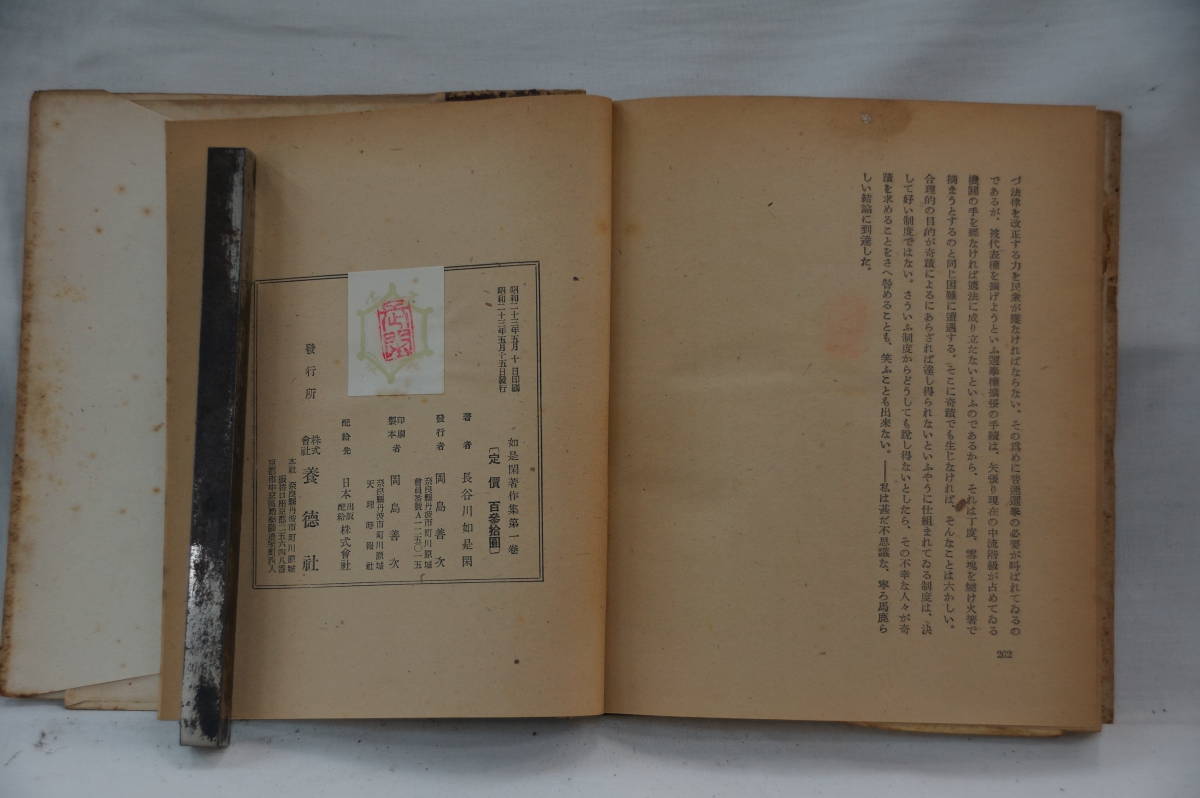 づ法律を改正する力を民衆が獲なければならない。その爲めに普通選擧の必要が叫ばれてゐるの
であるが、被代表權を擴げようといふ選擧權擴張の手續は、矢張り現在の中流階級が占めてゐる
機關の手を經なければ適法に成り立たないといふのであるから、それは丁度、靈魂を燒け火箸で
摘まうとするのと同じ困難に遭遇する。そこに奇蹟でも生じなければ、そんなことは六かしい。
合理的の目的が奇蹟によるにあらざれば達し得られないといふやうに仕組まれてゐる制度は、決
して好い制度ではない。さういふ制度からどうしても脫し得ないとしたら、その不幸な人々が奇
蹟を求めることをさへ咎めることも、笑ふことも出來ない。――私は甚だ不思議な、寧ろ馬鹿ら
しい結論に到達した。
202
如是閑著作集第一卷
〔定價 百參拾圓〕
昭和二十三年五月十日印刷
昭和二十三年五月十五日發行
著者 長谷川如是閑
發行者 岡島善次
奈良縣丹波市町川原城
會員番號A一二五〇一五
印刷製本者 岡島善次
奈良縣丹波市町川原城
天理時報社
配給先 日本出版配給株式會社
發行所 株式會社 養德社
本社 奈良縣丹波市町川原城
振替口座京都二五六四八番